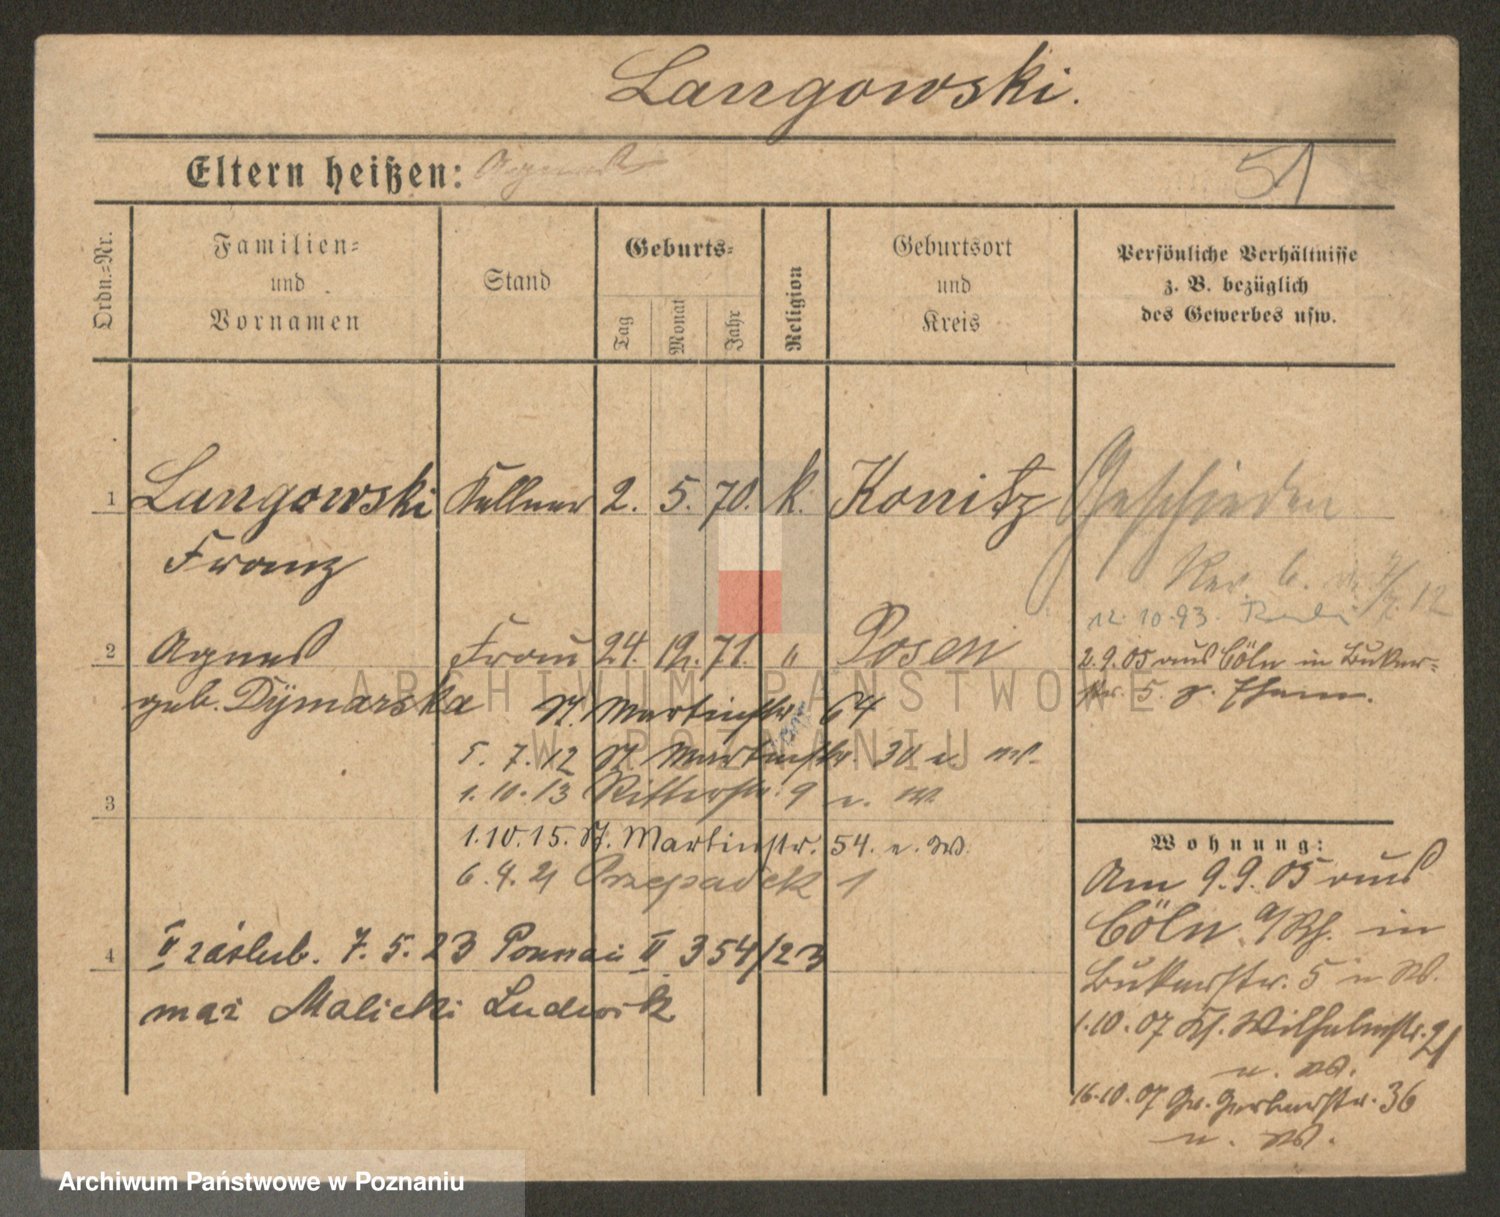 Langowski.
Eltern heißen: Agnes
51
Ordn.=Nr.
Familien=
und
Vornamen
Stand
Geburts=
Tag
Monat
Jahr
Religion
Geburtsort
und
Kreis
Persönliche Verhältnisse
z. B. bezüglich
des Gewerbes usw.
1 Langowski Kellner 2. 5. 70. k. Konitz Geschieden
Franz
12
12.10.93.
2 Agnes Frau 24. 12. 71. " Posen
2.9.05 aus Cöln in Buker=
str. 5. z. Ehem.
geb. Dymarska
St. Martinstr. 64
5.7.12 St. Martinstr. 30 u. W.
1.10.13 Ritterstr. 9 u. W.
3
1.10.15. St. Martinstr. 54. u. W.
6.4.21 Przepadek 1
4 II zaślub. 7.5.23 Poznań II 354/23
mąż Malicki Ludwik
Wohnung:
Am 9.9.05 aus
Cöln a/Rh. in
Bukerstr. 5 u W.
1.10.07 Kl. Wilhelmstr. 21
u. W.
16.10.07 Gr. Gerberstr. 36
u. W.
ARCHIWUM PAŃSTWOWE
W POZNANIU
Archiwum Państwowe w Poznaniu